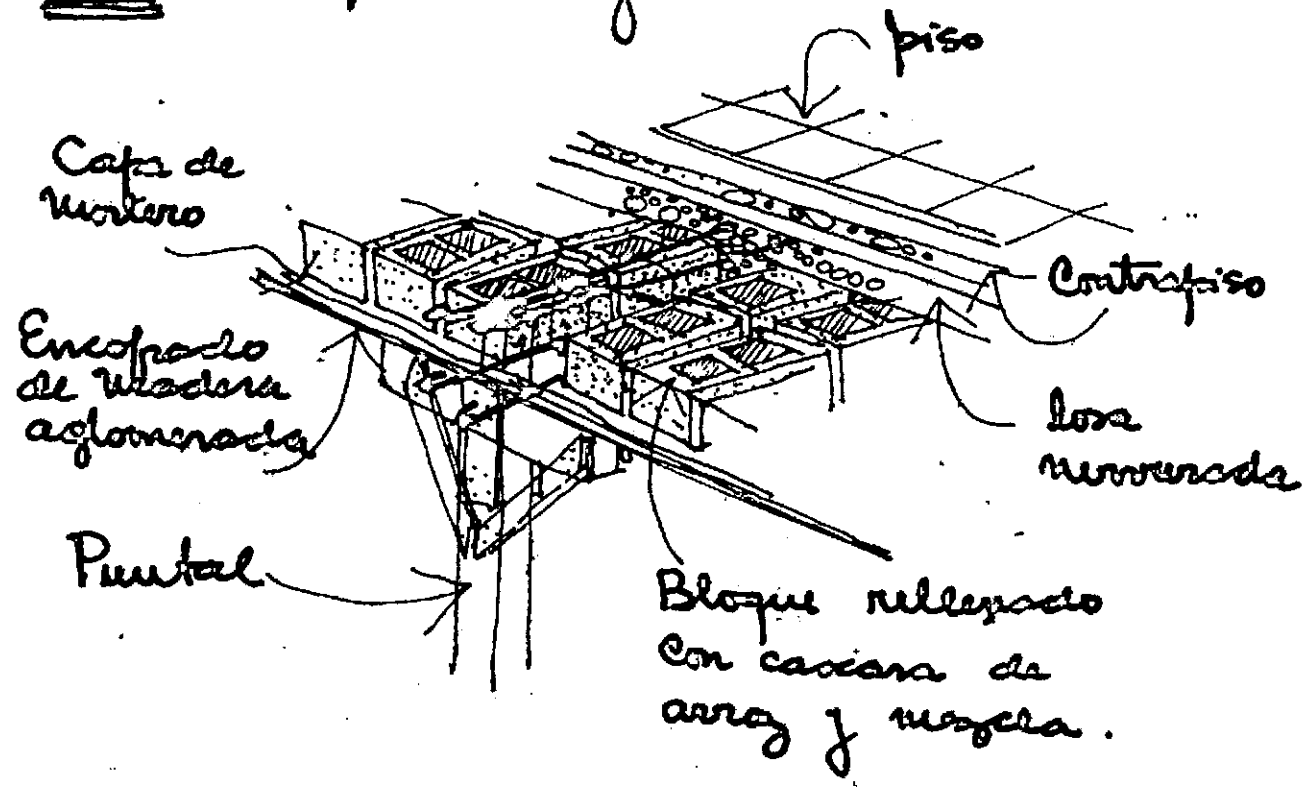 piso
Capa de
mortero
Contrapiso
Encofrado
de madera
aglomerada
losa
nervurada
Puntal
Bloque rellenado
con cascara de
arroz y mezcla.